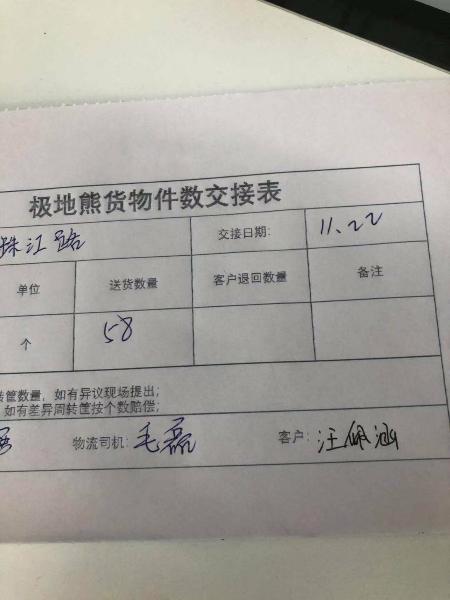 极地熊货物件数交接表
珠江路 交接日期: 11.22
单位 送货数量 客户退回数量 备注
个 58
转筐数量，如有异议现场提出；
如有差异周转筐按个数赔偿；
物流司机: 毛磊 客户: 汪佩涵